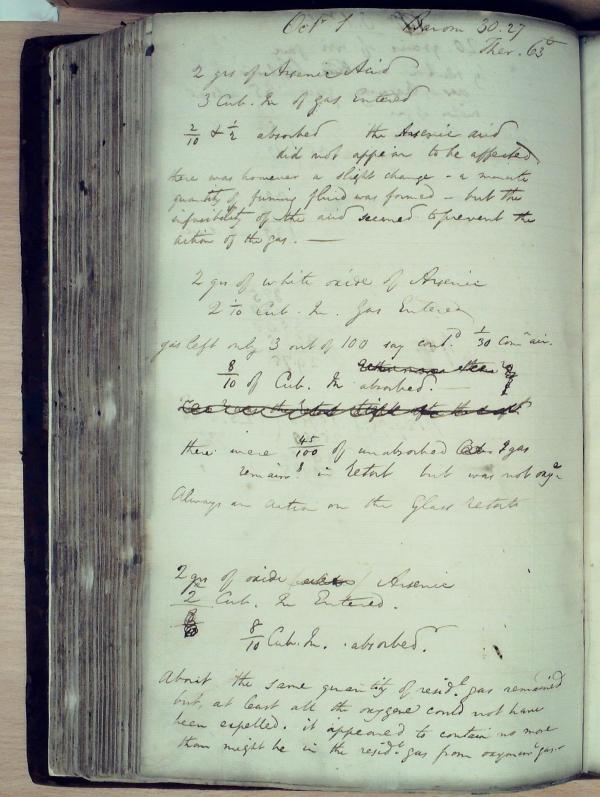 Oct 1 Barom 30.27
Ther. 63°
2 grs of Arsenic Acid
3 Cub. In of gas Entered
2/10 & 1/2 absorbed the Arsenic acid
did not appear to be affected
there was however a slight change - a minute
quantity of fuming fluid was formed - but the
infusibility of the acid seemed to prevent the
action of the gas. —
2 grs of white oxide of Arsenic
2 1/10 Cub. In. gas Entered
gas left only 3 out of 100 say contd. 1/30 Comn air.
8/10 of Cub. In absorbed. —
there were 45/100 of unabsorbed gas
remaing in retort but was not oxyn
Always an action on the Glass retorts
2 grs of oxide Arsenic
2 Cub. In Entered.
8/10 Cub. In. absorbed.
About the same quantity of residl gas remained
but, at least all the oxygene could not have
been expelled. it appeared to contain no more
than might be in the residl gas from oxymuri gas.